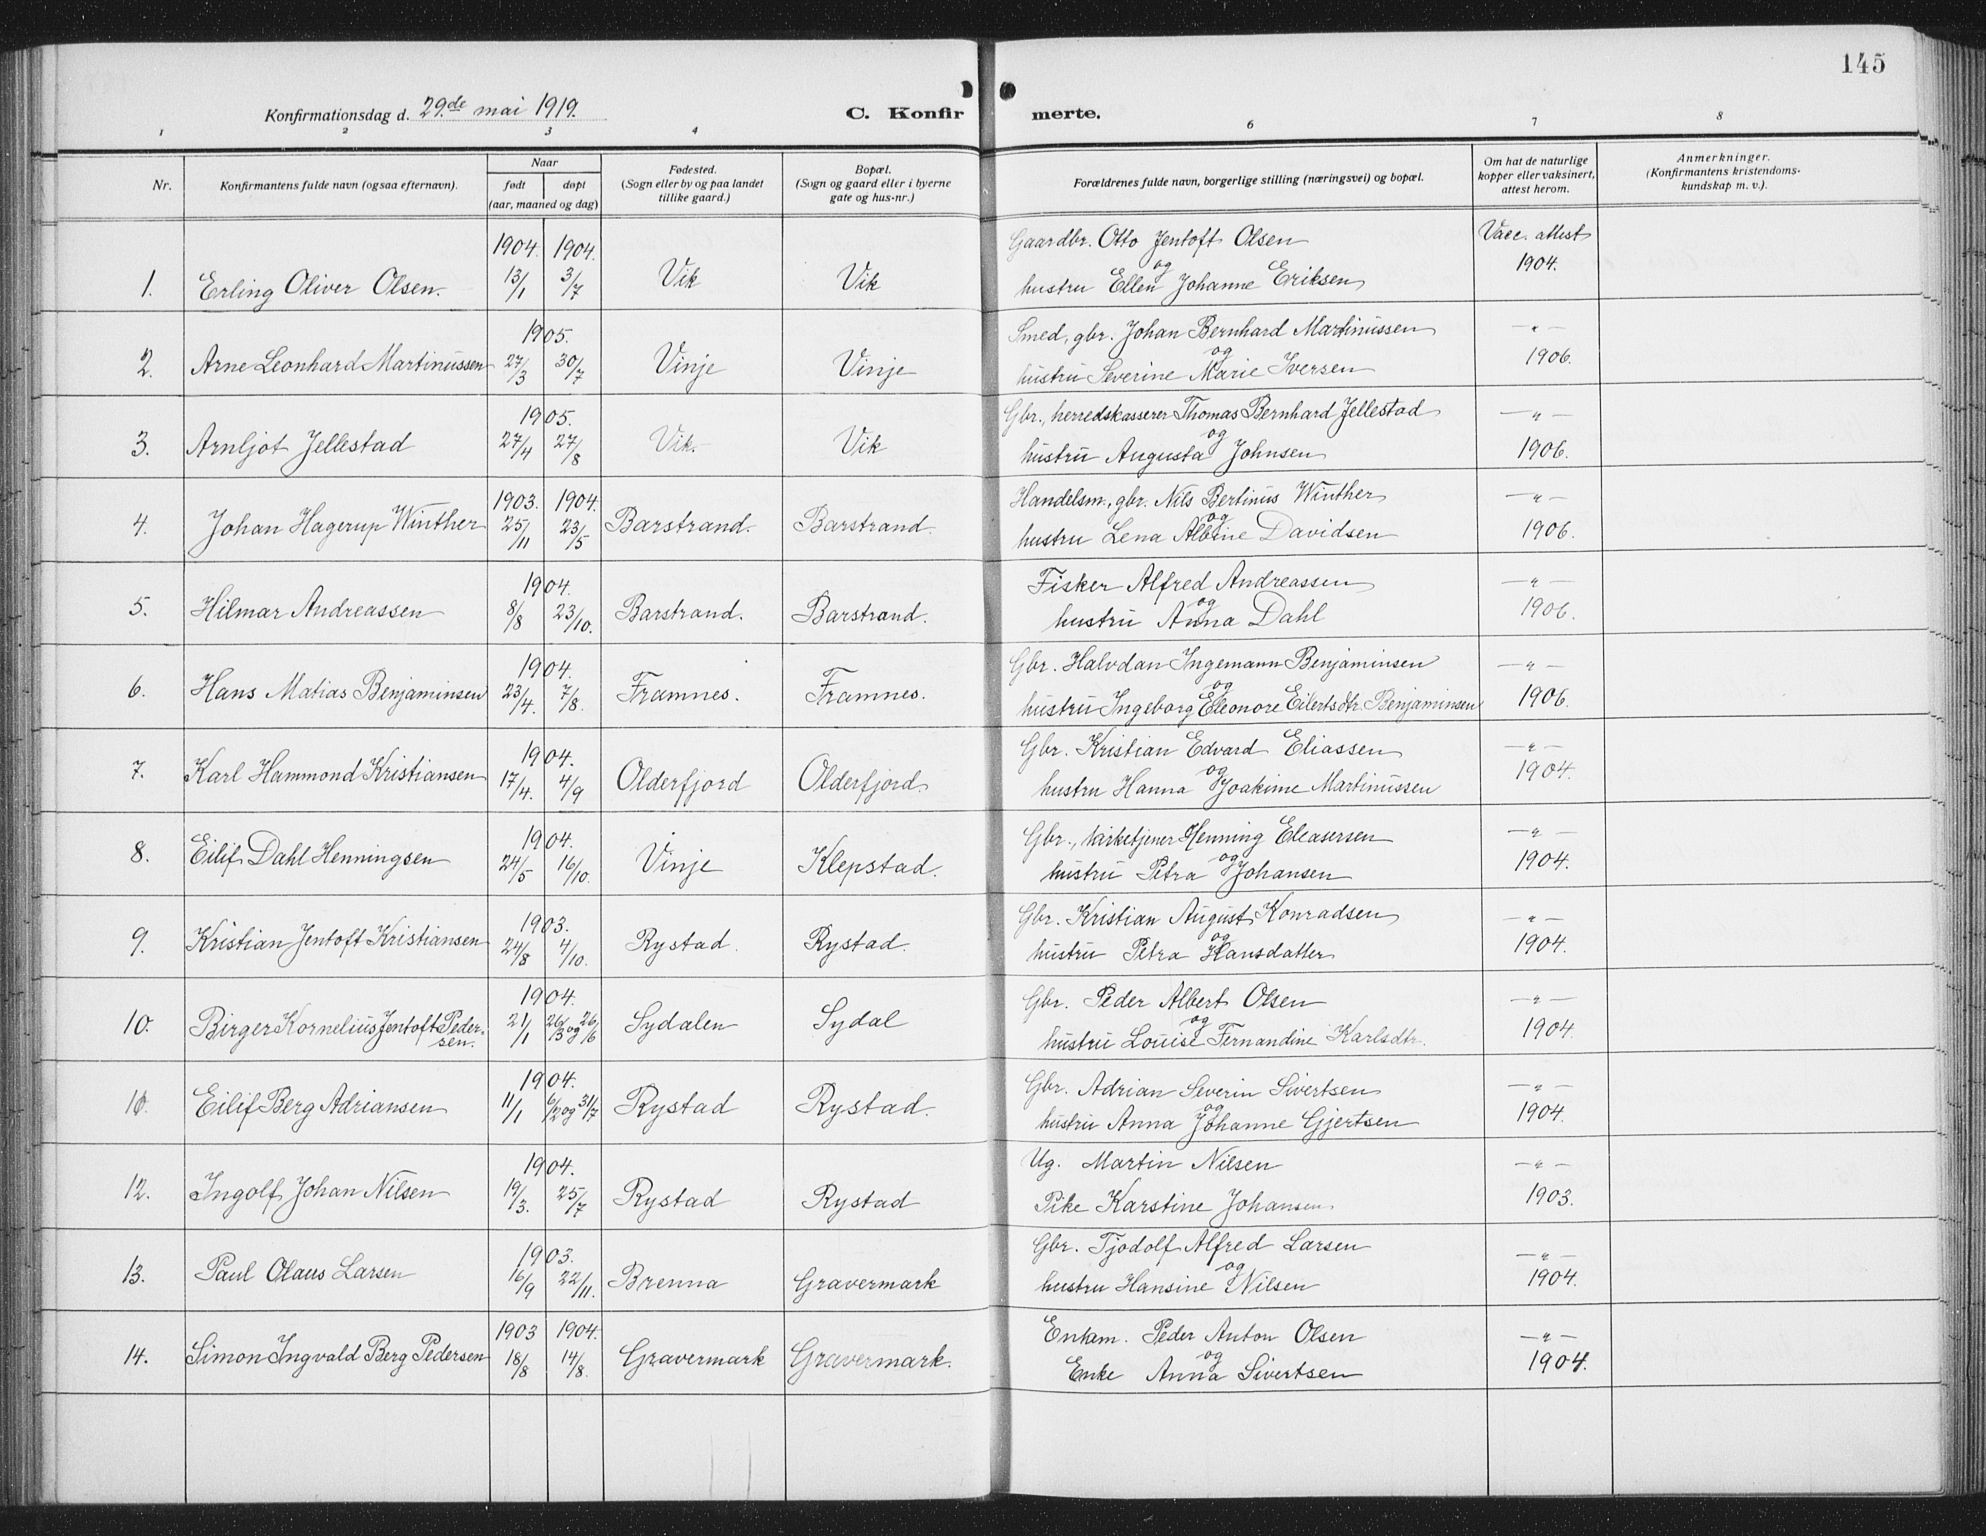 145
Konfirmationsdag d. 29de mai 1919. C. Konfir merte.
1 2 3 4 6 7 8
Nr.
Konfirmantens fulde navn (ogsaa efternavn).
Naar
født døpt
(aar, maaned og dag)
Fødested.
(Sogn eller by og paa landet
tillike gaard.)
Bopæl.
(Sogn og gaard eller i byerne
gate og hus-nr.)
Forældrenes fulde navn, borgerlige stilling (næringsvei) og bopæl.
Om hat de naturlige
kopper eller vaksinert,
attest herom.
Anmerkninger.
(Konfirmantens kristendoms-
kundskap m. v.).
1904. 1904. Gaardbr. Otto Jentoft Olsen Vacc. attest
og
1. Erling Oliver Olsen. 13/1 3/7 Vik Vik hustru Ellen Johanne Eriksen 1904.
1905. Smed, gbr. Johan Bernhard Martinussen —"—
og
2. Arne Leonhard Martinussen 27/3 30/7 Vinje Vinje hustru Severine Marie Iversen 1906.
1905. Gbr., herredskasserer Thomas Bernhard Jellestad —"—
og
3. Arnljot Jellestad 27/4 27/8 Vik. Vik hustru Augusta Johnsen 1906.
1903. 1904. Handelsm., gbr. Nils Bertinus Winther —"—
og
4. Johan Hagerup Winther 25/11 23/5 Barstrand. Barstrand. hustru Lena Albine Davidsen 1906.
1904. Fisker Alfred Andreassen —"—
og
5. Hilmar Andreassen 8/8 23/10. Barstrand. Barstrand. hustru Anna Dahl 1906.
1904. Gbr. Halvdan Ingemann Benjaminsen —"—
og
6. Hans Matias Benjaminsen 23/4. 7/8. Framnes. Framnes. hustru Ingeborg Eleonore Eilertsdtr. Benjaminsen 1906.
1904. Gbr. Kristian Edvard Eliassen —"—
og
7. Karl Hammond Kristiansen 17/4. 4/9 Olderfjord Olderfjord hustru Hanna Joakime Martinussen 1904.
1904. Gbr., kirketjener Henning Eleasersen —"—
og
8. Eilif Dahl Henningsen 24/5 16/10. Vinje Klepstad. hustru Petra Johansen 1904.
1903. Gbr. Kristian August Konradsen —"—
og
9. Kristian Jentoft Kristiansen 24/8 4/10. Rystad. Rystad. hustru Petra Hansdatter 1904.
1904. Gbr. Peder Albert Olsen —"—
og
10. Birger Kornelius Jentoft Peder-
sen. 21/1 26/3 og 26/6 Sydalen Sydal hustru Louise Fernandine Karlsdtr. 1904.
1904. Gbr. Adrian Severin Sivertsen —"—
og
Eilif Berg Adriansen 11/1 6/2 og 31/7 Rystad Rystad. hustru Anna Johanne Gjertsen 1904.
1904. Ug. Martin Nilsen —"—
12. Ingolf Johan Nilsen 19/3. 25/7 Rystad Rystad Pike Karstine Johansen 1903.
1903. Gbr. Tjodolf Alfred Larsen —"—
og
13. Paul Olaus Larsen 16/9 22/11. Brenna Gravermark hustru Hansine Nilsen 1904.
1903 1904. Enkem. Peder Anton Olsen —"—
og
14. Simon Ingvald Berg Pedersen 18/8 14/8. Gravermark Gravermark. Enke Anna Sivertsen 1904.